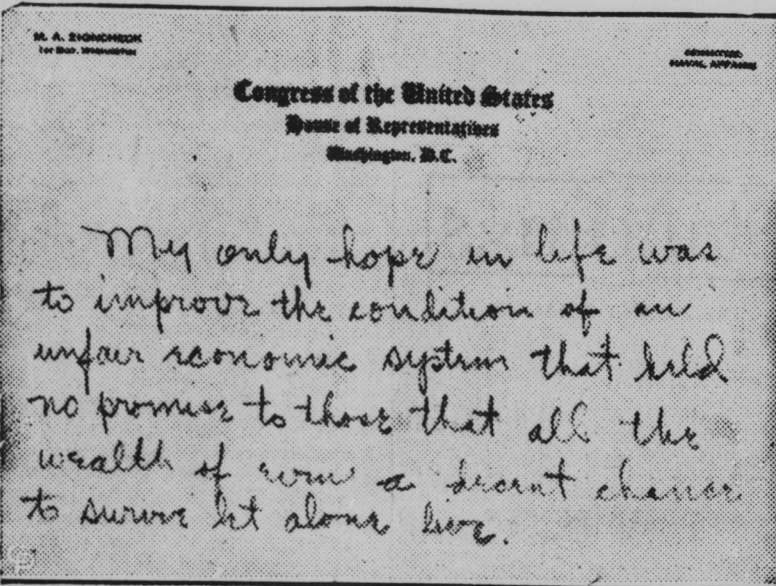 M. A. ZIONCHECK
1ST DIST. WASHINGTON
COMMITTEE:
NAVAL AFFAIRS
Congress of the United States
House of Representatives
Washington, D.C.
My only hope in life was
to improve the condition of an
unfair economic system that held
no promise to those that all the
wealth of even a decent chance
to survive let alone live.